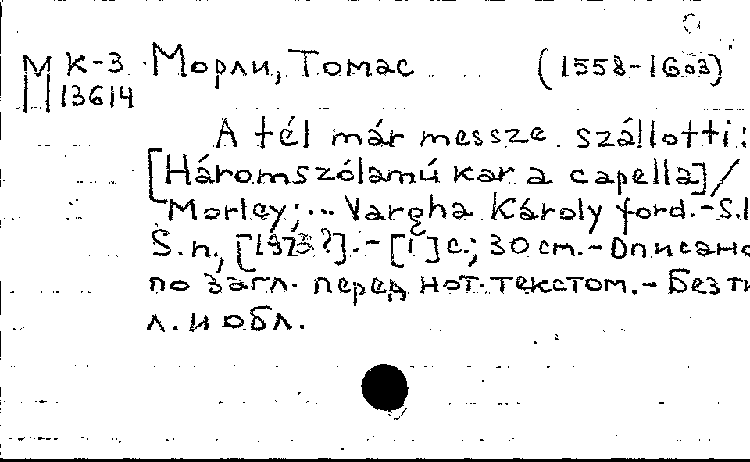 М К-3 Морли, Томас (1558-1603)
13614
A tél már messze szállott:
[Háromszólamú kar a capella]/
Morley;... Vargha Károly ford.-S.l
S.n., [1973?].-[1]с.; 30 cm.-Описано
по загл. перед нот.текстом.- Без ти
л. и обл.